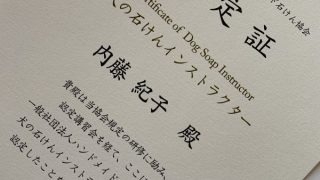 石けん協会
定証
ertificate of Dog Soap Instructor
犬の石けんインストラクター
内藤 紀子 殿
貴殿は当協会規定の研修に励み、
認定講習会を経て、ここに
一般社団法人ハンドメイド
犬の石けんインスト
認定したことを